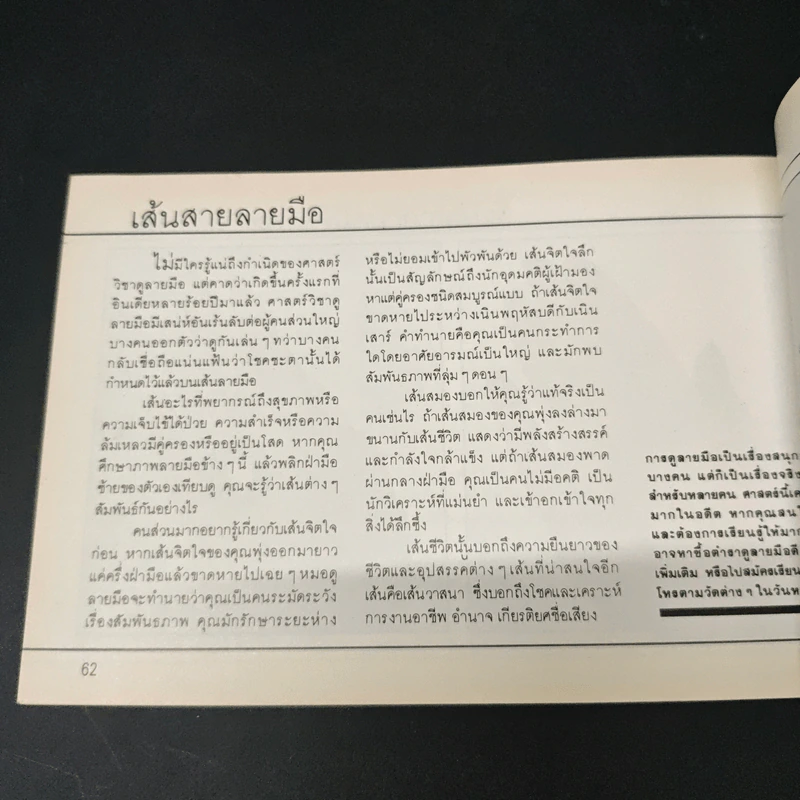 เส้นสายลายมือ
ไม่มีใครรู้แน่ถึงกำเนิดของศาสตร์
วิชาดูลายมือ แต่คาดว่าเกิดขึ้นครั้งแรกที่
อินเดียหลายร้อยปีมาแล้ว ศาสตร์วิชาดู
ลายมือมีเสน่ห์อันเร้นลับต่อผู้คนส่วนใหญ่
บางคนออกตัวว่าดูกันเล่น ๆ ทว่าบางคน
กลับเชื่อถือแน่นแฟ้นว่าโชคชะตานั้นได้
กำหนดไว้แล้วบนเส้นลายมือ
เส้นอะไรที่พยากรณ์ถึงสุขภาพหรือ
ความเจ็บไข้ได้ป่วย ความสำเร็จหรือความ
ล้มเหลวมีคู่ครองหรืออยู่เป็นโสด หากคุณ
ศึกษาภาพลายมือข้าง ๆ นี้ แล้วพลิกฝ่ามือ
ซ้ายของตัวเองเทียบดู คุณจะรู้ว่าเส้นต่าง ๆ
สัมพันธ์กันอย่างไร
คนส่วนมากอยากรู้เกี่ยวกับเส้นจิตใจ
ก่อน หากเส้นจิตใจของคุณพุ่งออกมายาว
แค่ครึ่งฝ่ามือแล้วขาดหายไปเฉย ๆ หมอดู
ลายมือจะทำนายว่าคุณเป็นคนระมัดระวัง
เรื่องสัมพันธภาพ คุณมักรักษาระยะห่าง
หรือไม่ยอมเข้าไปพัวพันด้วย เส้นจิตใจลึก
นั้นเป็นสัญลักษณ์ถึงนักอุดมคติผู้เฝ้ามอง
หาแต่คู่ครองชนิดสมบูรณ์แบบ ถ้าเส้นจิตใจ
ขาดหายไประหว่างเนินพฤหัสบดีกับเนิน
เสาร์ คำทำนายคือคุณเป็นคนกระทำการ
ใดโดยอาศัยอารมณ์เป็นใหญ่ และมักพบ
สัมพันธภาพที่ลุ่ม ๆ ดอน ๆ
เส้นสมองบอกให้คุณรู้ว่าแท้จริงเป็น
คนเช่นไร ถ้าเส้นสมองของคุณพุ่งลงล่างมา
ขนานกับเส้นชีวิต แสดงว่ามีพลังสร้างสรรค์
และกำลังใจกล้าแข็ง แต่ถ้าเส้นสมองพาด
ผ่านกลางฝ่ามือ คุณเป็นคนไม่มีอคติ เป็น
นักวิเคราะห์ที่แม่นยำ และเข้าอกเข้าใจทุก
สิ่งได้ลึกซึ้ง
เส้นชีวิตนั้นบอกถึงความยืนยาวของ
ชีวิตและอุปสรรคต่าง ๆ เส้นที่น่าสนใจอีก
เส้นคือเส้นวาสนา ซึ่งบอกถึงโชคและเคราะห์
การงานอาชีพ อำนาจ เกียรติยศชื่อเสียง
การดูลายมือเป็นเรื่องสนุก
บางคน แต่ก็เป็นเรื่องจริง
สำหรับหลายคน ศาสตร์นี้เค
มากในอดีต หากคุณสนใ
และต้องการเรียนรู้ให้มาก
อาจหาซื้อตำราดูลายมือดี
เพิ่มเติม หรือไปสมัครเรียน
โหรตามวัดต่าง ๆ ในวันห
62